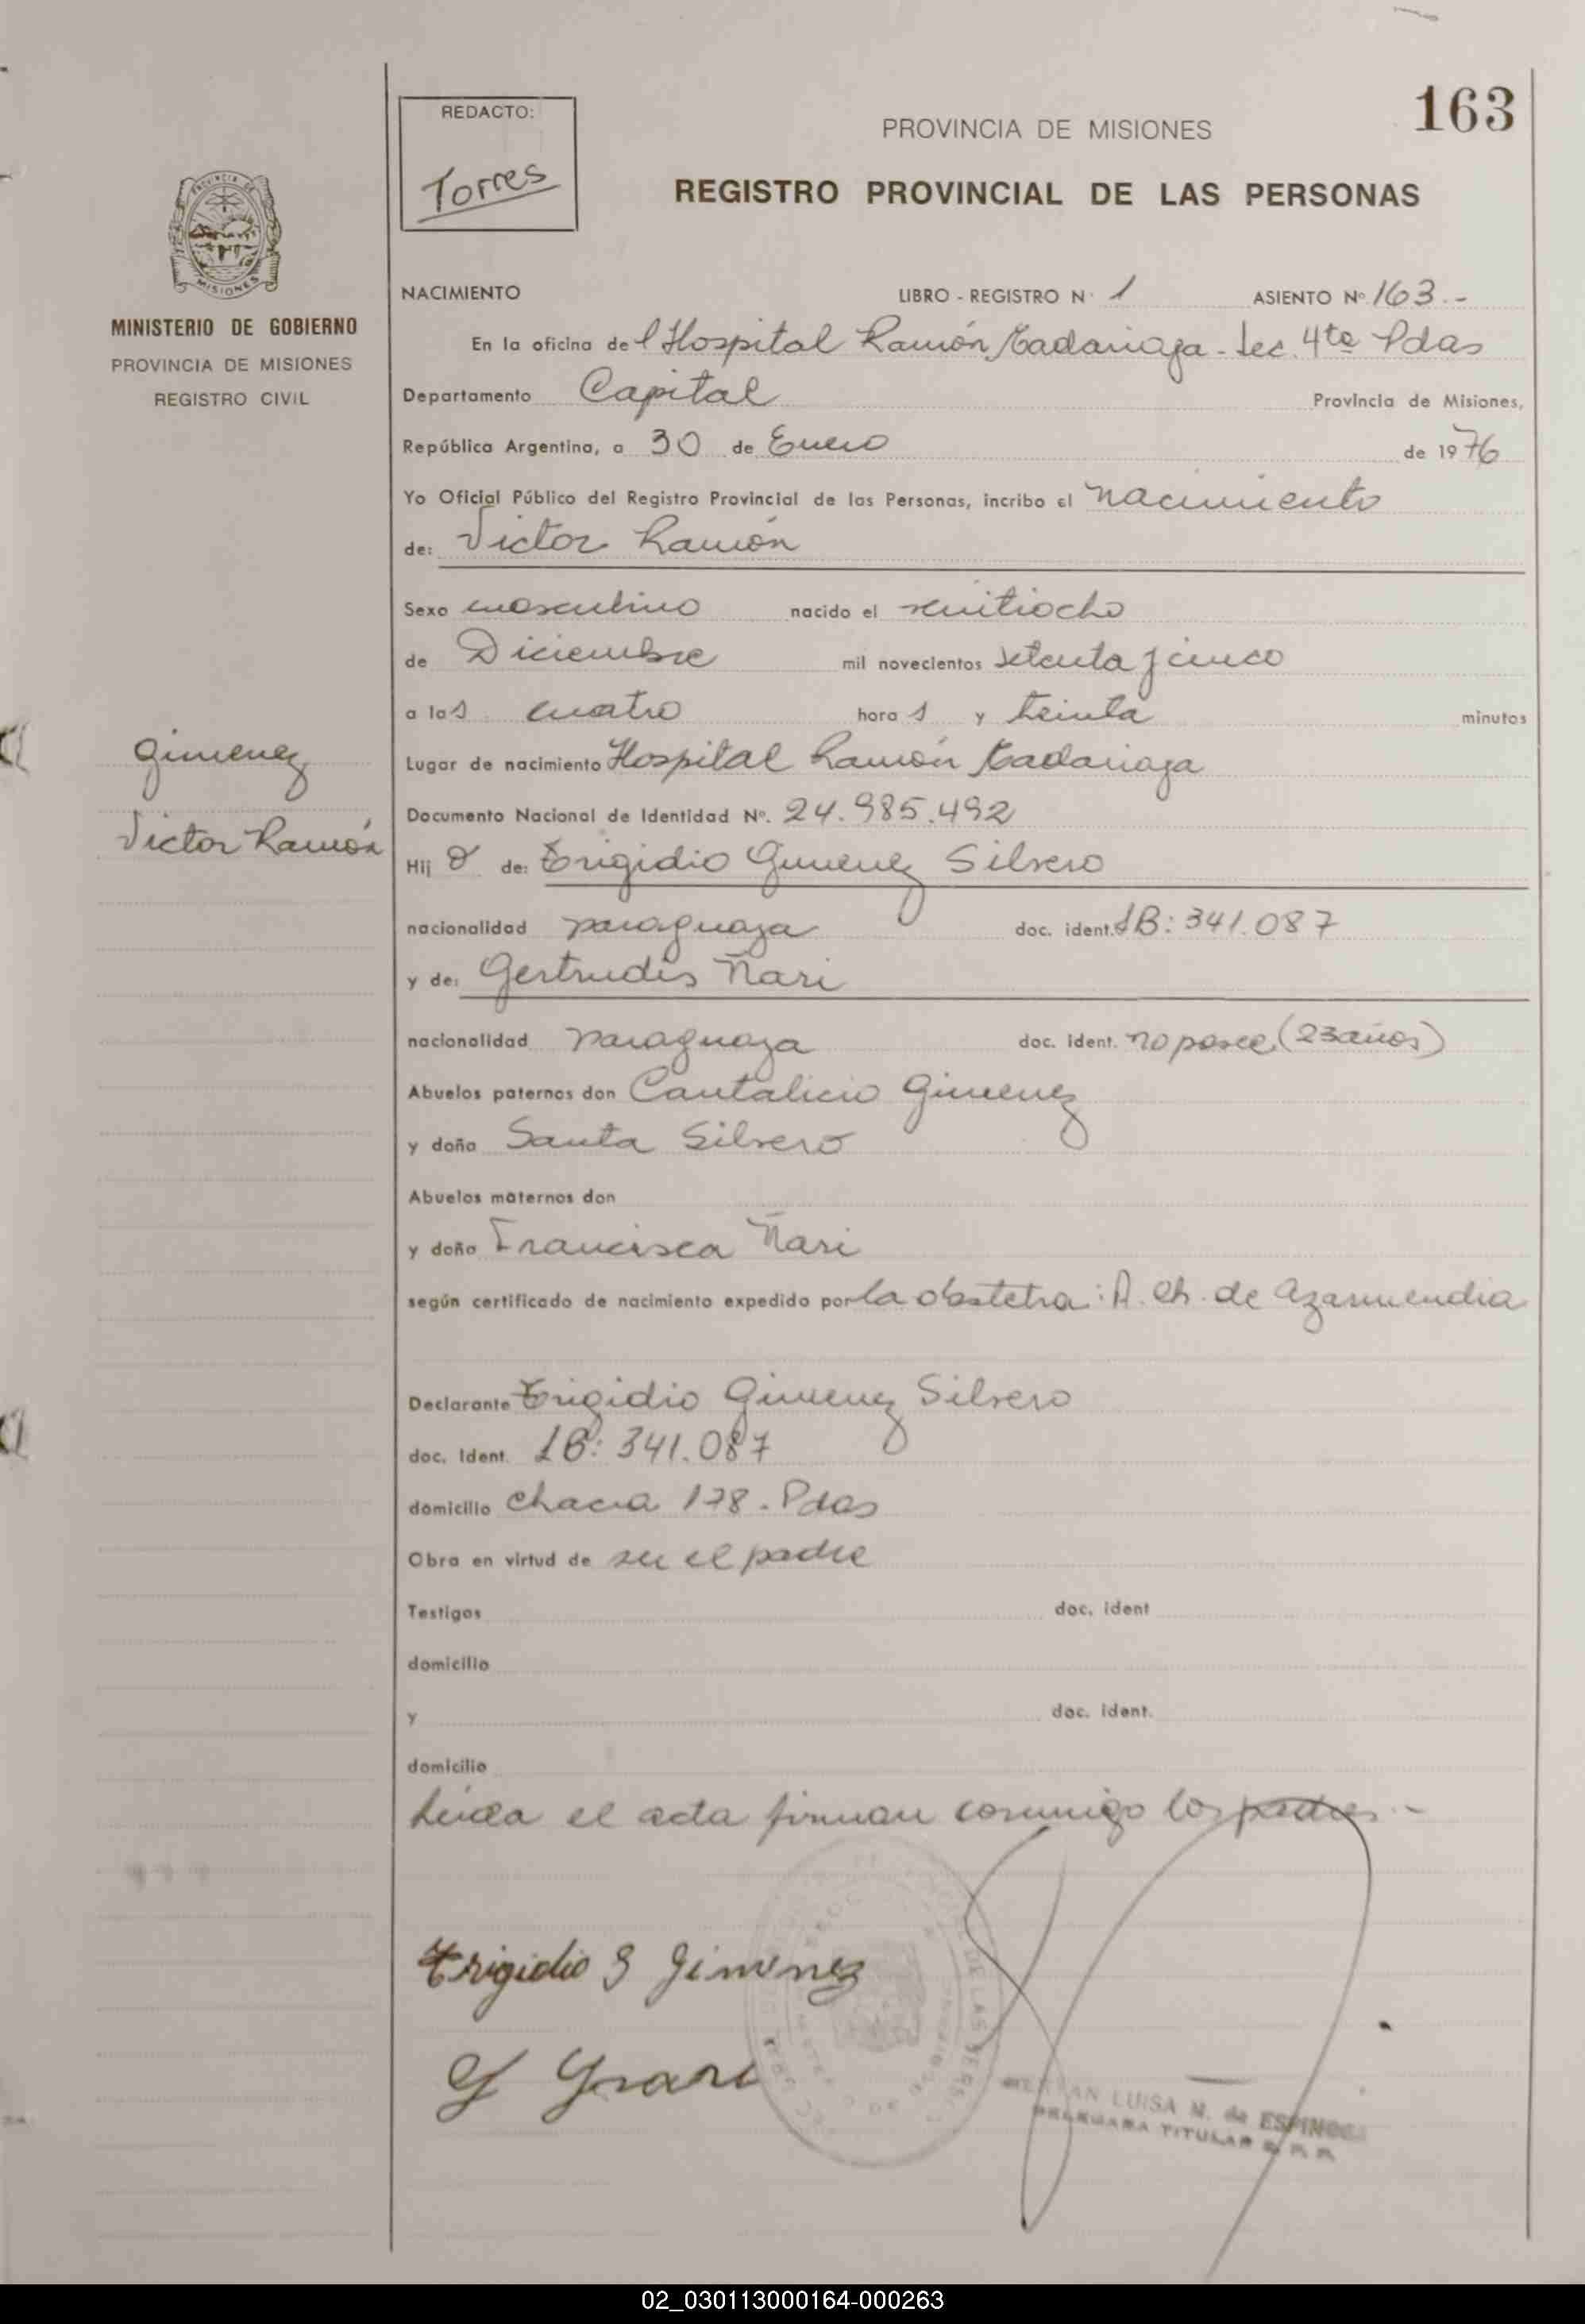 163
REDACTO:
Torres
PROVINCIA DE MISIONES
REGISTRO PROVINCIAL DE LAS PERSONAS
PROVINCIA DE
MISIONES
MINISTERIO DE GOBIERNO
PROVINCIA DE MISIONES
REGISTRO CIVIL
NACIMIENTO LIBRO - REGISTRO Nº 1 ASIENTO Nº 163.-
En la oficina del Hospital Ramón Madariaga - Sec. 4ta Pdas
Departamento Capital Provincia de Misiones,
República Argentina, a 30 de Enero de 1976
Yo Oficial Público del Registro Provincial de las Personas, incribo el nacimiento
de: Victor Ramón
Sexo masculino nacido el veintiocho
de Diciembre mil novecientos setenta y cinco
a las cuatro horas y treinta minutos
Gimenez
Victor Ramón
Lugar de nacimiento Hospital Ramón Madariaga
Documento Nacional de Identidad Nº. 24.985.492
Hijo de: Gimenez Silvero
nacionalidad paraguaya doc. ident. LB: 341.087
y de: Gertrudis Ñari
nacionalidad paraguaya doc. ident. no posee (23 años)
Abuelos paternos don Cantalicio Gimenez
y doña Santa Silvero
Abuelos maternos don
y doña Francisca Ñari
según certificado de nacimiento expedido por la obstetra: A. Ch. de Azarmendia
Declarante Gimenez Silvero
doc. Ident. LB: 341.087
domicilio chacra 178 - Pdas
Obra en virtud de ser el padre
Testigos doc. ident
domicilio
y doc. ident.
domicilio
Leida el acta firman conmigo los padres.-
S Gimenez
LUISA M. de ESPINOSA
TITULAR
02_030113000164-000263